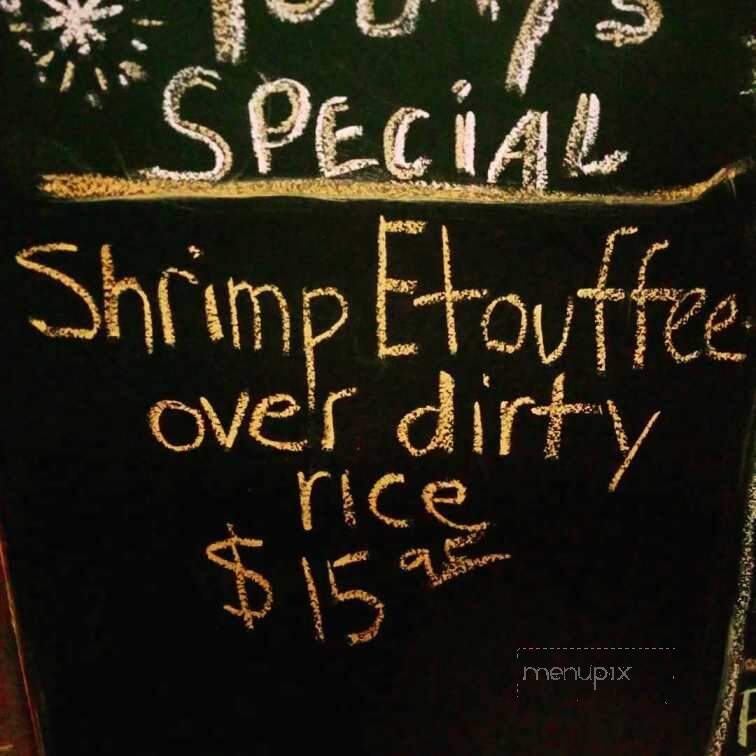 Today's
SPECiAL
Shrimp Etouffee
over dirty
rice
$ 15 95
menupix